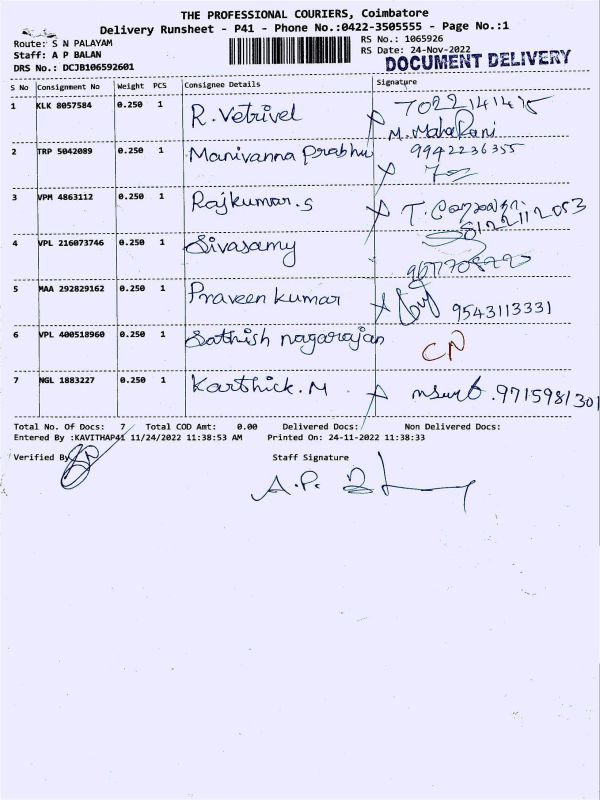 THE PROFESSIONAL COURIERS, Coimbatore
Delivery Runsheet - P41 - Phone No.:0422-3505555 - Page No.:1
Route: S N PALAYAM
Staff: A P BALAN
DRS No.: DCJB106592601
RS No.: 1065926
RS Date: 24-Nov-2022
DOCUMENT DELIVERY
S No Consignment No Weight PCS Consignee Details Signature
1 KLK 8057584 0.250 1 R. Vetrivel
M. MahaRani
2 TRP 5042089 0.250 1 Manivanna Prabhu 9942236355
3 VPM 4863112 0.250 1 Rajkumar.S
8122112053
4 VPL 216073746 0.250 1 Sivasamy
5 MAA 292829162 0.250 1 Praveen kumar 9543113331
6 VPL 400518960 0.250 1 Sathish nagarajan CN
7 NGL 1883227 0.250 1 Karthick.M 9715981301
Total No. Of Docs: 7 Total COD Amt: 0.00 Delivered Docs: Non Delivered Docs:
Entered By :KAVITHAP41 11/24/2022 11:38:53 AM Printed On: 24-11-2022 11:38:33
Verified By Staff Signature
A.P.